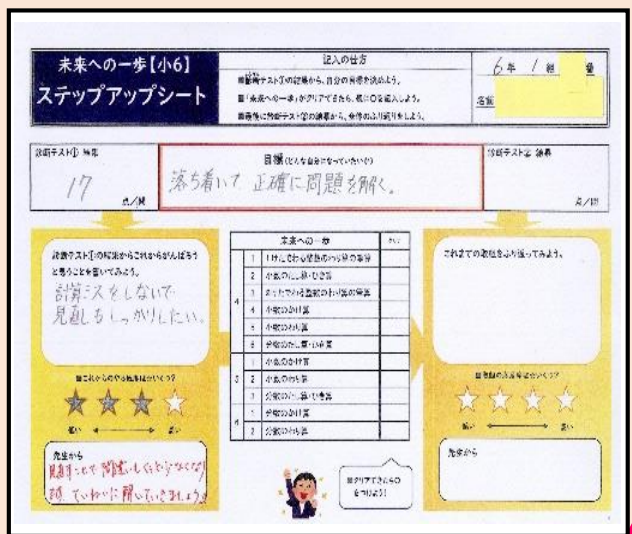 未来への一歩【小6】
ステップアップシート
記入の仕方
■診断テスト①の結果から、自分の目標を決めよう。
■「未来への一歩」がクリアできたら、横に○を記入しよう。
■最後に診断テスト②の結果から、全体のふり返りをしよう。
6年 1組 番
名前
診断テスト① 結果
17 点/問
目標(どんな自分になっていたいか)
落ち着いて 正確に問題を解く。
診断テスト② 結果
点/問
診断テスト①の結果からこれからがんばろう
と思うことを書いてみよう。
計算ミスをしないで
見直しもしっかりしたい。
■これからのやる気度は☆いくつ?
低い 高い
先生から
未来への一歩
4
1 1けたでわる整数のわり算の筆算
2 小数のたし算・ひき算
3 2けたでわる整数のわり算の筆算
4 小数のかけ算
5 小数のわり算
6 分数のたし算・ひき算
5
1 小数のかけ算
2 小数のわり算
3 分数のたし算・ひき算
6
1 分数のかけ算
2 分数のわり算
■クリアできたら○
をつけよう!
これまでの取組をふり返ってみよう。
■取組の満足度は☆いくつ?
低い 高い
先生から